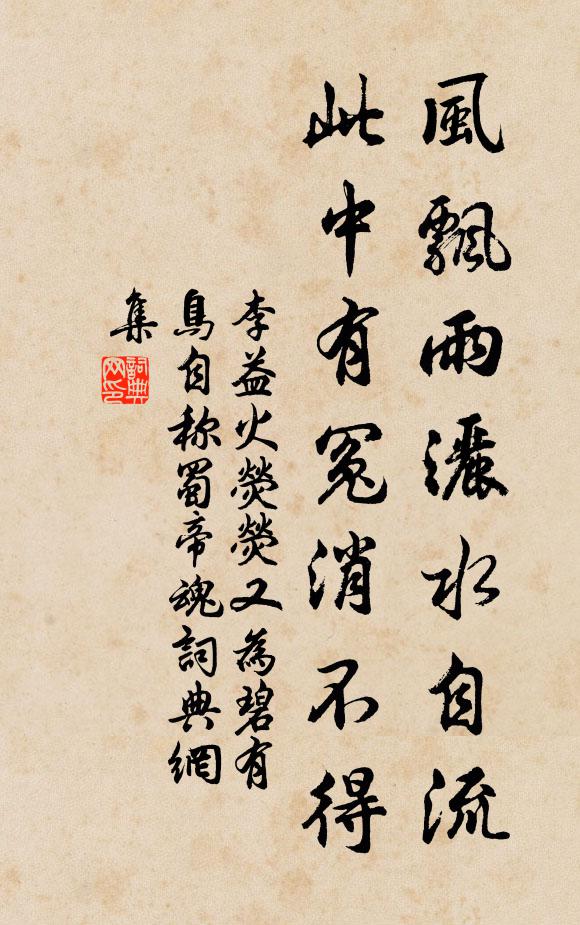 風飄雨灑水自流
此中有冤消不得
李益火熒熒又為碧有
鳥自称蜀帝魂詞典網
集
詞典
网印